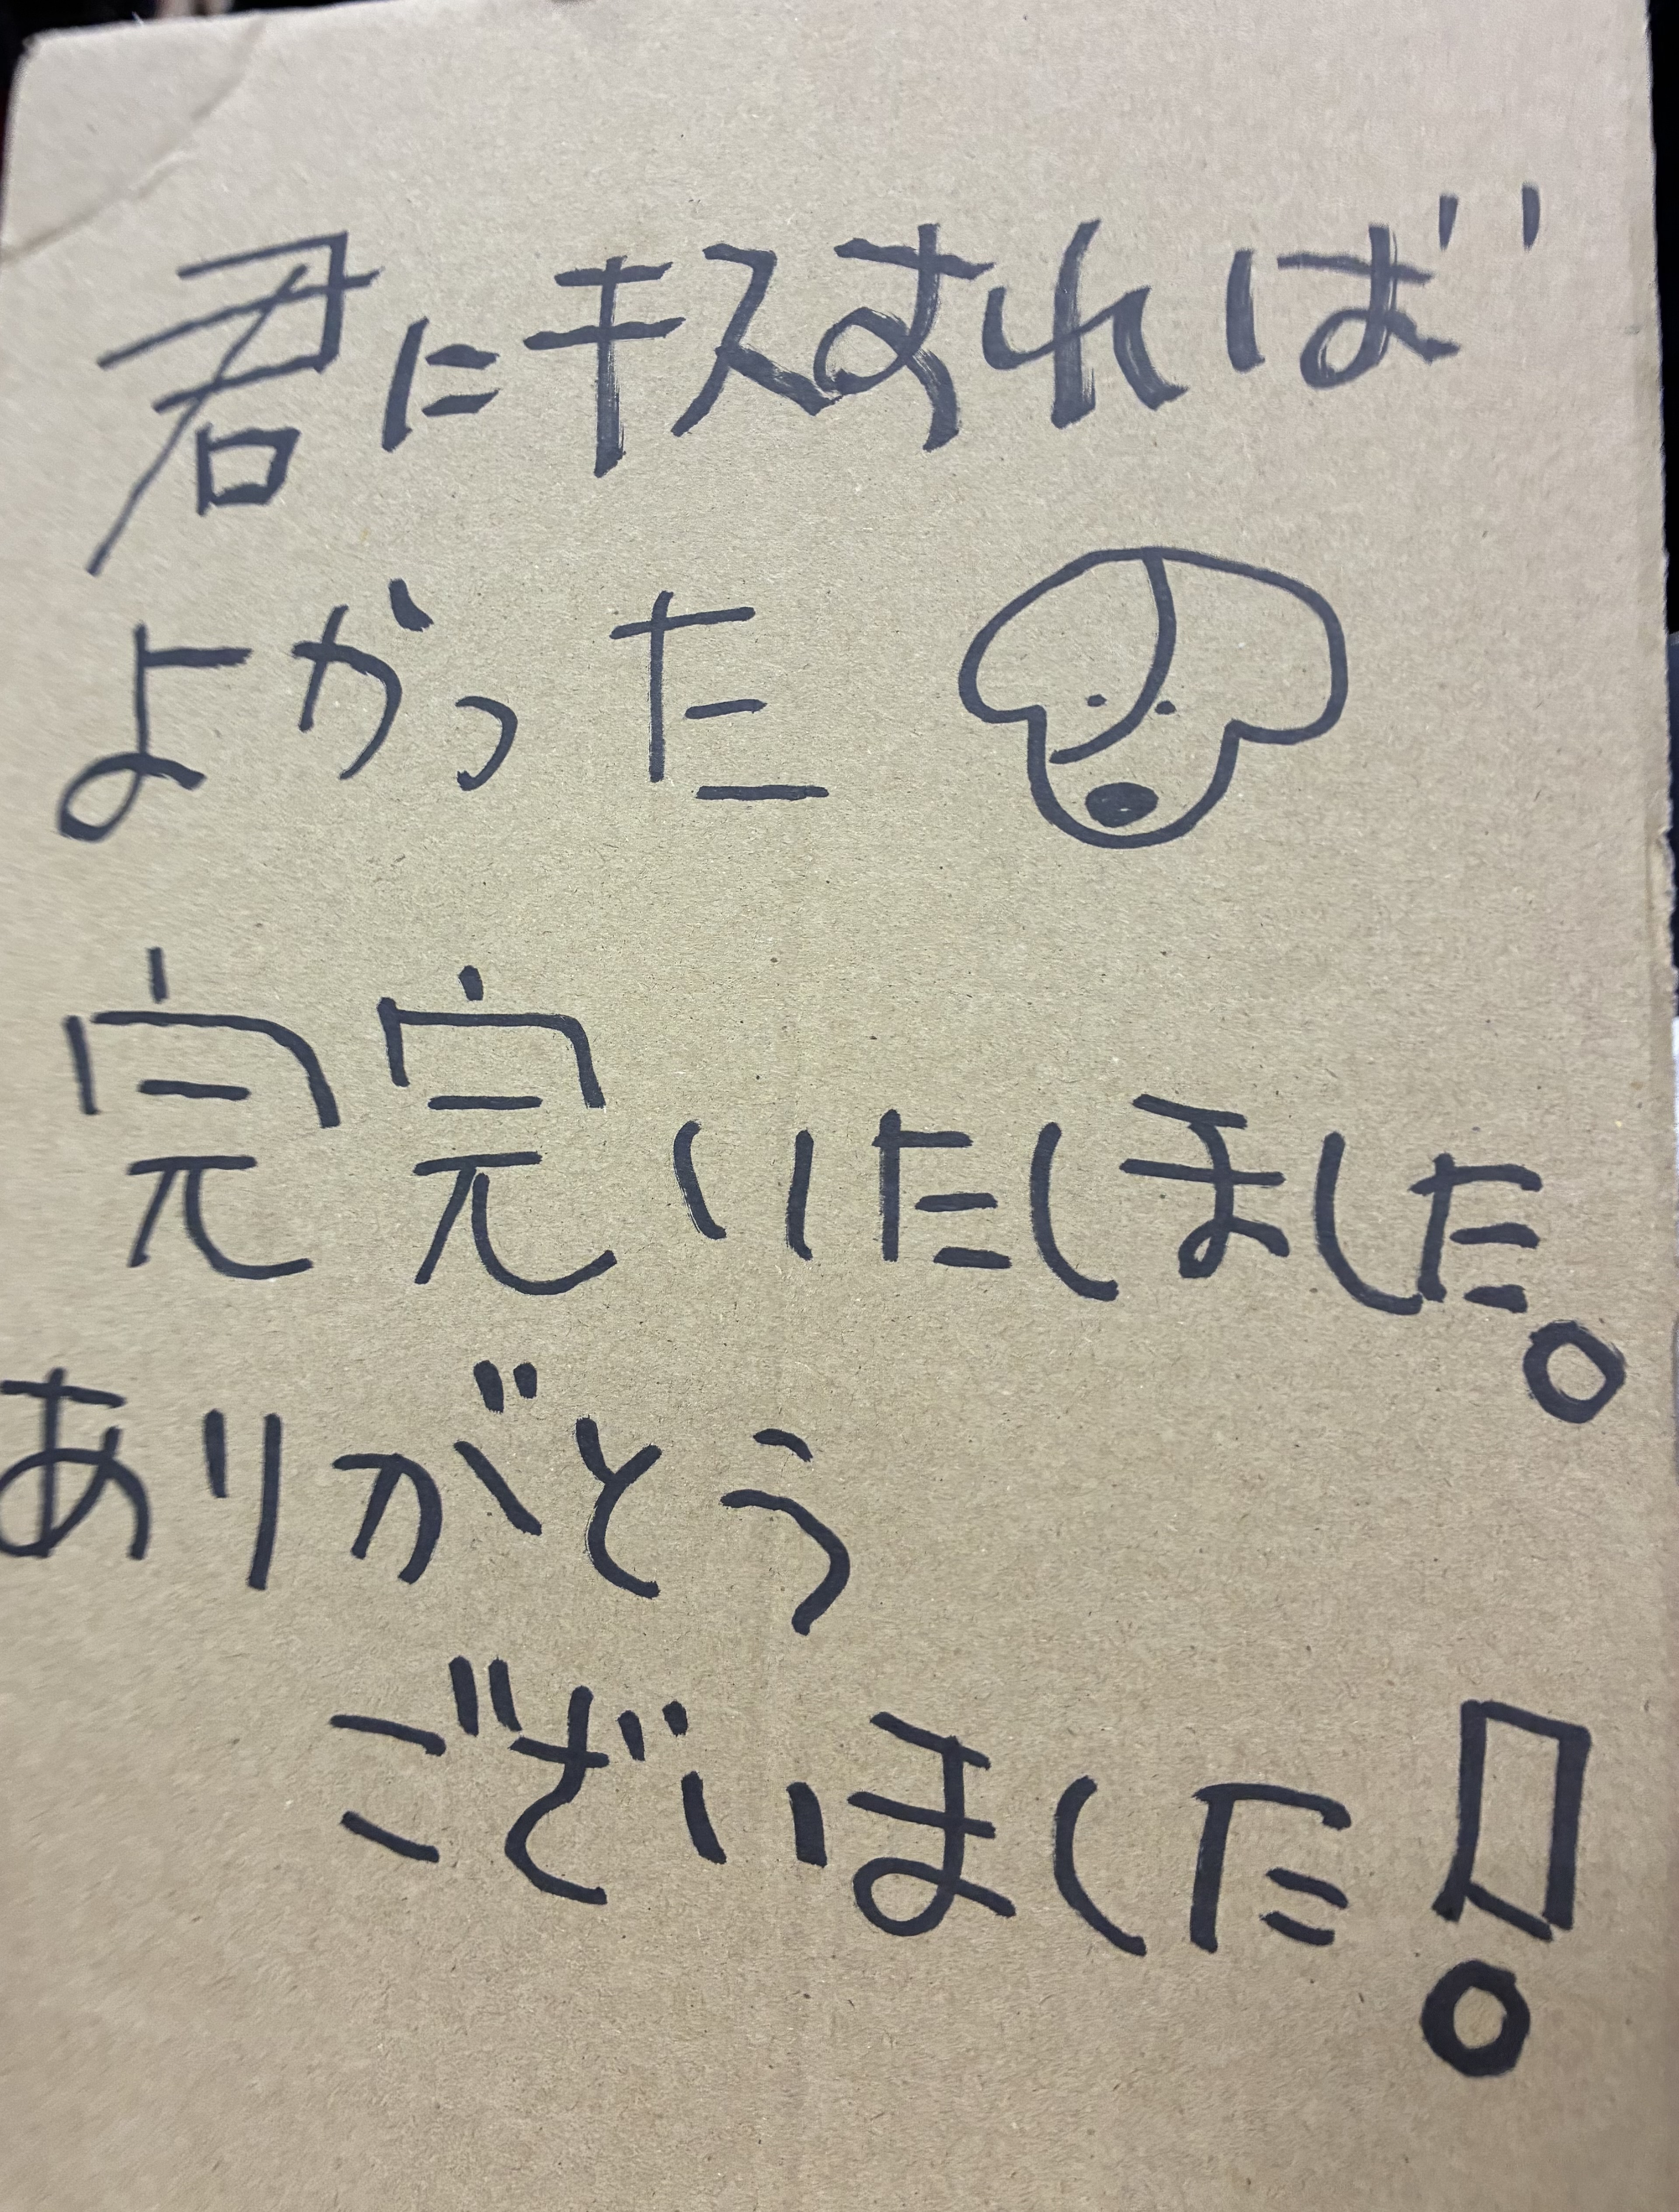 君にキスすれば
よかった
完完いたしました。
ありがとう
ございました!